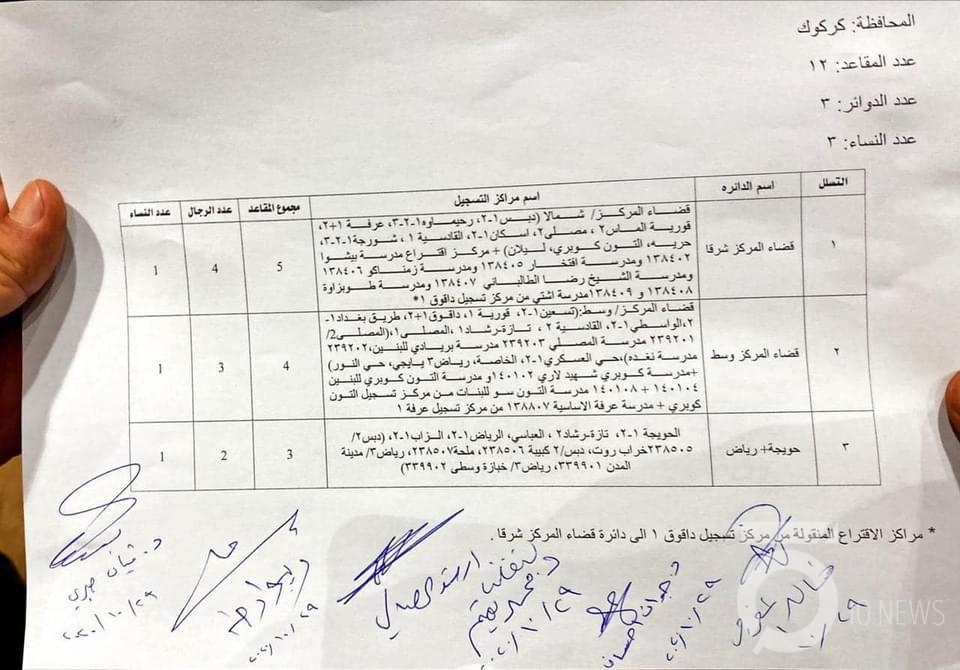 المحافظة: كركوك
عدد المقاعد: ١٢
عدد الدوائر: ٣
عدد النساء: ٣
التسلل اسم الدائره اسم مراكز التسجيل مجموع المقاعد عدد الرجال عدد النساء
١ قضاء المركز شرقا 5 4 1
قضاء المركز/ شمالا (دبس١-٢، رحيماوه١-٢-٣، عرفة ١+٢،
قورية الماس٢ ، مصلى٢، اسكان١-٢، القادسية ١ ، شورجة١-٢-٣،
حريه، التون كوبري، ليلان) + مركز اقتراع مدرسة بيشوا
١٣٨٤٠٢ ومدرسة افتخار ١٣٨٤٠٥ ومدرسة زمناكو ١٣٨٤٠٦
ومدرسة الشيخ رضا الطالباني ١٣٨٤٠٧ ومدرسة طوبزاوة
١٣٨٤٠٨ و ١٣٨٤٠٩مدرسة اشتي من مركز تسجيل داقوق ١*
٢ قضاء المركز وسط 4 3 1
قضاء المركز/ وسط:(تسعين١-٢، قورية ١، داقوق١+٢، طريق بغداد١-
٢،الواسطي١-٢، القادسية ٢ ، تازة-رشاد١ ،المصلى١،(المصلى2/
٢٣٩٢٠١ مدرسة المصلي ٢٣٩٢٠٣ مدرسة بريادي للبنين،٢٣٩٢٠٢
مدرسة نغده)،حي العسكري١-٢، الخاصة، رياض٣ يايجي، حي النور)
+مدرسة كوبري شهيد لاري ١٤٠١٠٢و مدرسة التون كوبري للبنين
١٤٠١٠٤ + ١٤٠١٠٨ مدرسة التون سو للبنات من مركز تسجيل التون
كوبري + مدرسة عرفة الاساسية ١٣٨٨٠٧ من مركز تسجيل عرفة ١
٣ حويجة+ رياض 3 2 1
الحويجة ١-٢، تازة-رشاد٢ ، العباسي، الرياض١-٢، الزاب١-٢، (دبس٢/
٢٣٨٥٠٥خراب روت، دبس/٢ كبيبة ٢٣٨٥٠٦، ملحة٢٣٨٥٠٧، رياض٣/ مدينة
المدن ٣٣٩٩٠١، رياض٣/ خبازة وسطى ٣٣٩٩٠٢)
* مراكز الاقتراع المنقولة من مركز تسجيل داقوق ١ الى دائرة قضاء المركز شرقا .
IQ NEWS